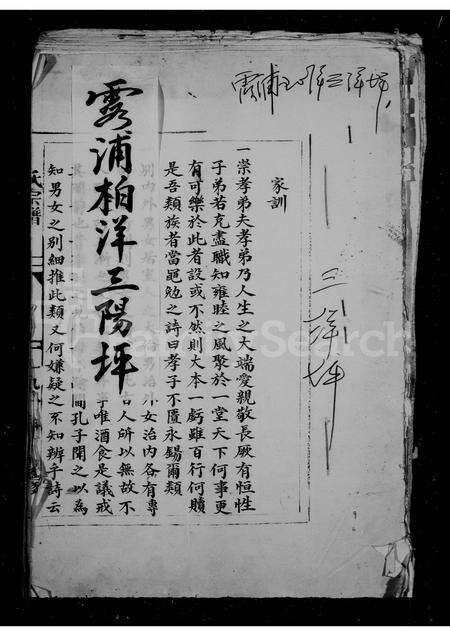 霞浦柏洋三洋坪
三洋坪
家訓
一崇孝弟夫孝弟乃人生之大端愛親敬長厥有恒性
子弟若克盡職知雍睦之風聚於一堂天下何事更
有可樂於此者設或不然則大本一虧雖百行何贖
是吾類族者當黽勉之詩曰孝子不匱永錫爾類
別內外男女
女治內各有專
人所以無故不
唯酒食是議戒
間孔子聞之以為
知男女之別細推此類又何嫌疑之不知辨乎詩云
霞浦柏洋三陽坪
氏宗譜